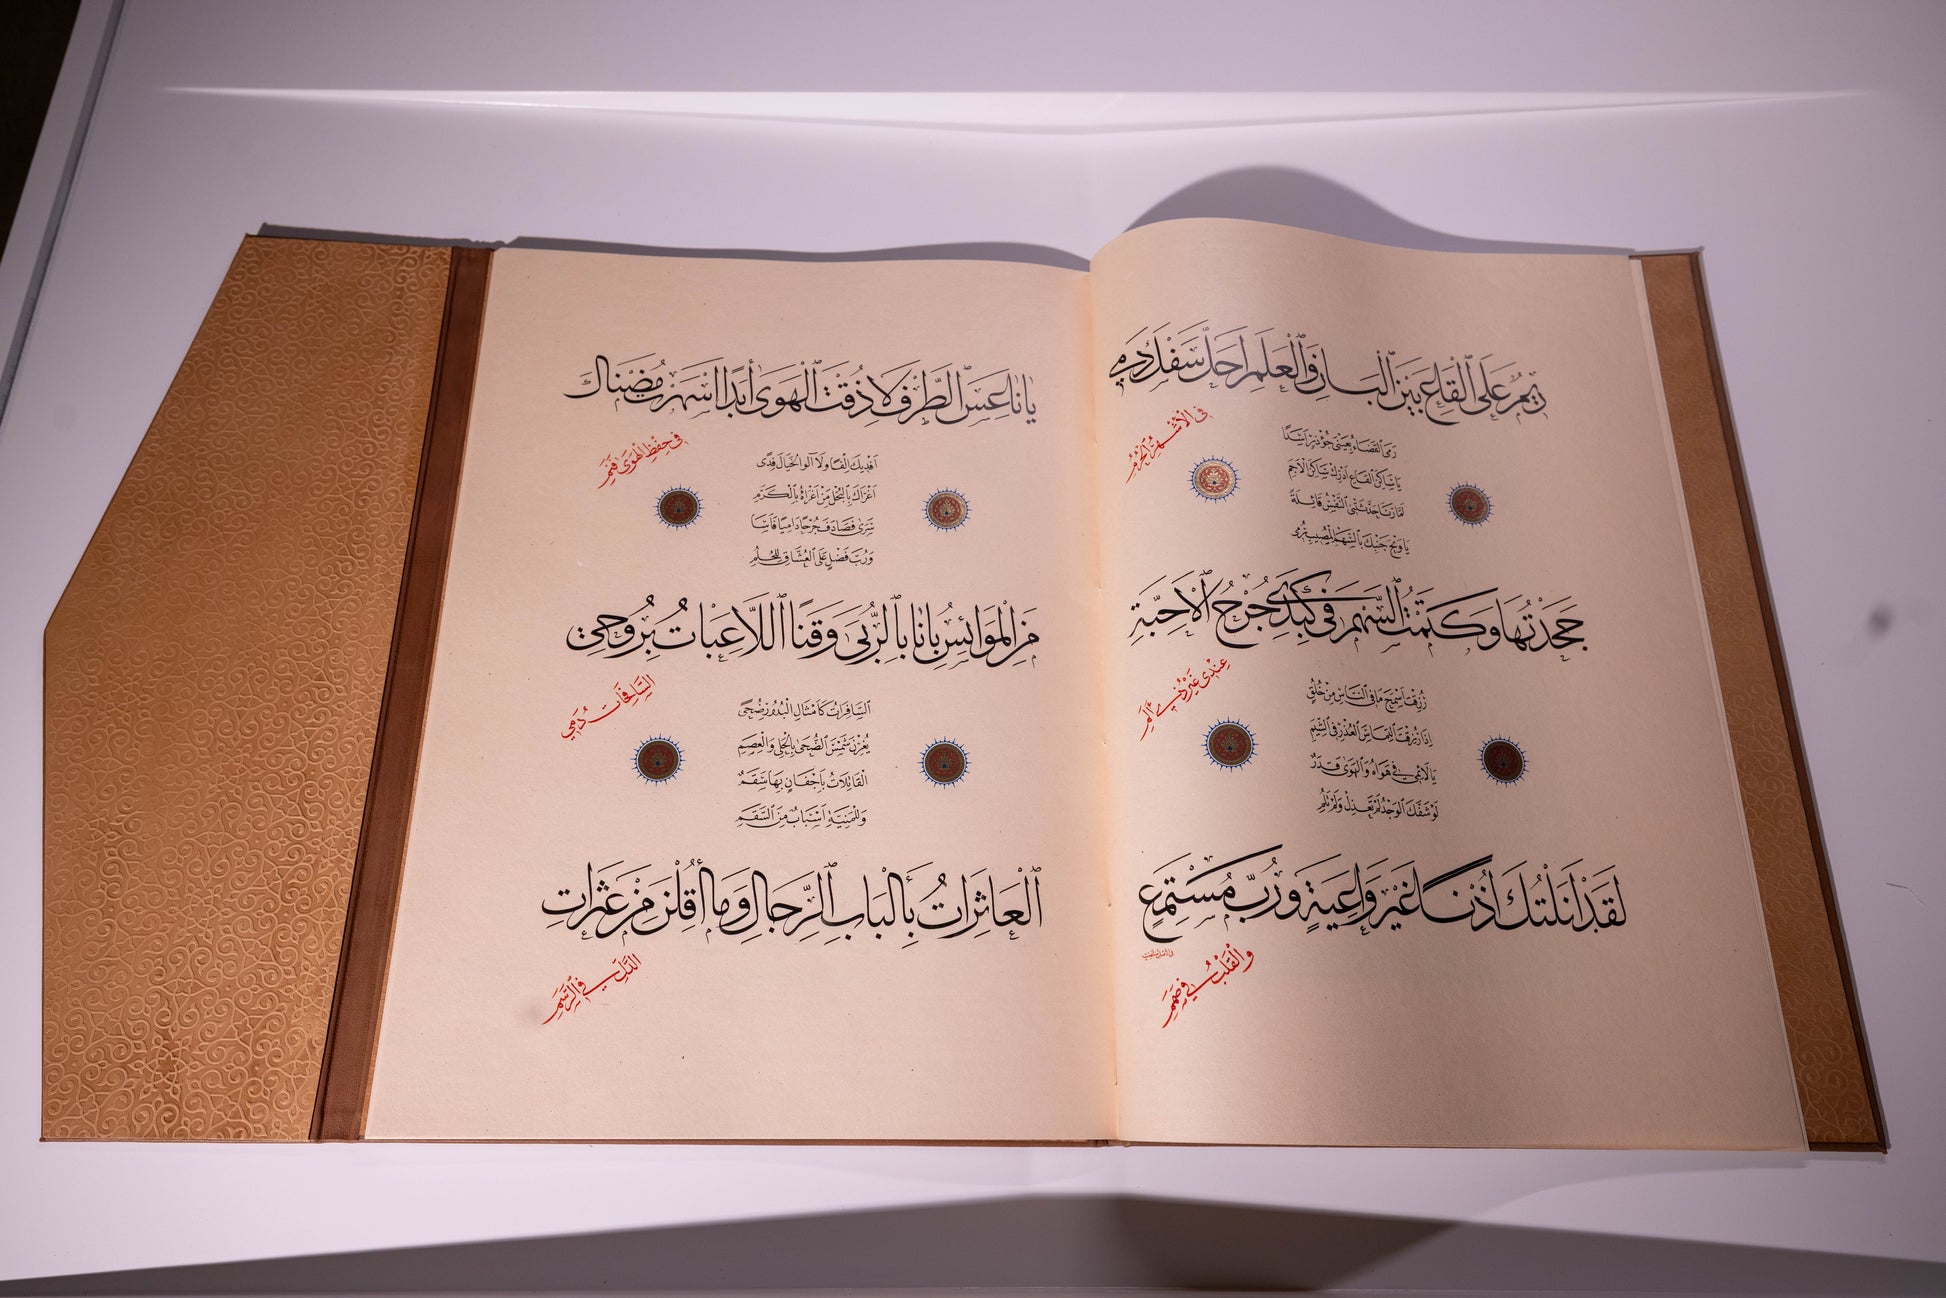 رِيمٌ عَلَى ٱلْقَاعِ بَيْنَ ٱلْبَانِ وَٱلْعَلَمِ أَحَلَّ سَفْكَ دَمِي
فِي ٱلْأَشْهُرِ ٱلْحُرُمِ
رَمَى ٱلْقَضَاءُ بِعَيْنَيْ جُؤْذَرٍ أَسَدًا
يَا سَاكِنَ ٱلْقَاعِ أَدْرِكْ سَاكِنَ ٱلْأَجَمِ
لَمَّا رَنَا حَدَّثَتْنِي ٱلنَّفْسُ قَائِلَةً
يَا وَيْحَ جَنْبِكَ بِٱلسَّهْمِ ٱلْمُصِيبِ رُمِي
جَحَدْتُهَا وَكَتَمْتُ ٱلسَّهْمَ فِي كَبِدِي جُرْحُ ٱلْأَحِبَّةِ
عِنْدِي غَيْرُ ذِي أَلَمِ
رُزِقْتَ أَسْمَحَ مَا فِي ٱلنَّاسِ مِنْ خُلُقٍ
إِذَا رُزِقْتَ ٱلْتِمَاسَ ٱلْعُذْرِ فِي ٱلشِّيَمِ
يَا لَائِمِي فِي هَوَاهُ وَٱلْهَوَى قَدَرٌ
لَوْ شَفَّكَ ٱلْوَجْدُ لَمْ تَعْذِلْ وَلَمْ تَلُمِ
لَقَدْ أَنَلْتُكَ أُذْنًا غَيْرَ وَاعِيَةٍ وَرُبَّ مُسْتَمِعٍ
وَٱلْقَلْبُ فِي صَمَمِ
يَا نَاعِسَ ٱلطَّرْفِ لَا ذُقْتَ ٱلْهَوَى أَبَدًا أَسْهَرْتَ مُضْنَاكَ
فِي حِفْظِ ٱلْهَوَى فَنَمِ
أَفْدِيكَ إِلْفًا وَلَا آلُو ٱلْخَيَالَ فِدًى
أَغْرَاكَ بِٱلْبُخْلِ مَنْ أَغْرَاهُ بِٱلْكَرَمِ
سَرَى فَصَادَفَ جُرْحًا دَامِيًا فَأَسَا
وَرُبَّ فَضْلٍ عَلَى ٱلْعُشَّاقِ لِلْحُلُمِ
مَنِ ٱلْمَوَائِسُ بَانًا بِٱلرُّبَى وَقَنًا ٱللَّاعِبَاتُ بِرُوحِي
ٱلسَّافِحَاتُ دَمِي
ٱلسَّافِرَاتُ كَأَمْثَالِ ٱلْبُدُورِ ضُحًى
يُغِرْنَ شَمْسَ ٱلضُّحَى بِٱلْحَلْيِ وَٱلْعِصَمِ
ٱلْقَاتِلَاتُ بِأَجْفَانٍ بِهَا سَقَمٌ
وَلِلْمَنِيَّةِ أَسْبَابٌ مِنَ ٱلسَّقَمِ
ٱلْعَاثِرَاتُ بِأَلْبَابِ ٱلرِّجَالِ وَمَا أُقِلْنَ مِنْ عَثَرَاتِ
ٱلدَّلِّ فِي ٱلرَّسَمِ